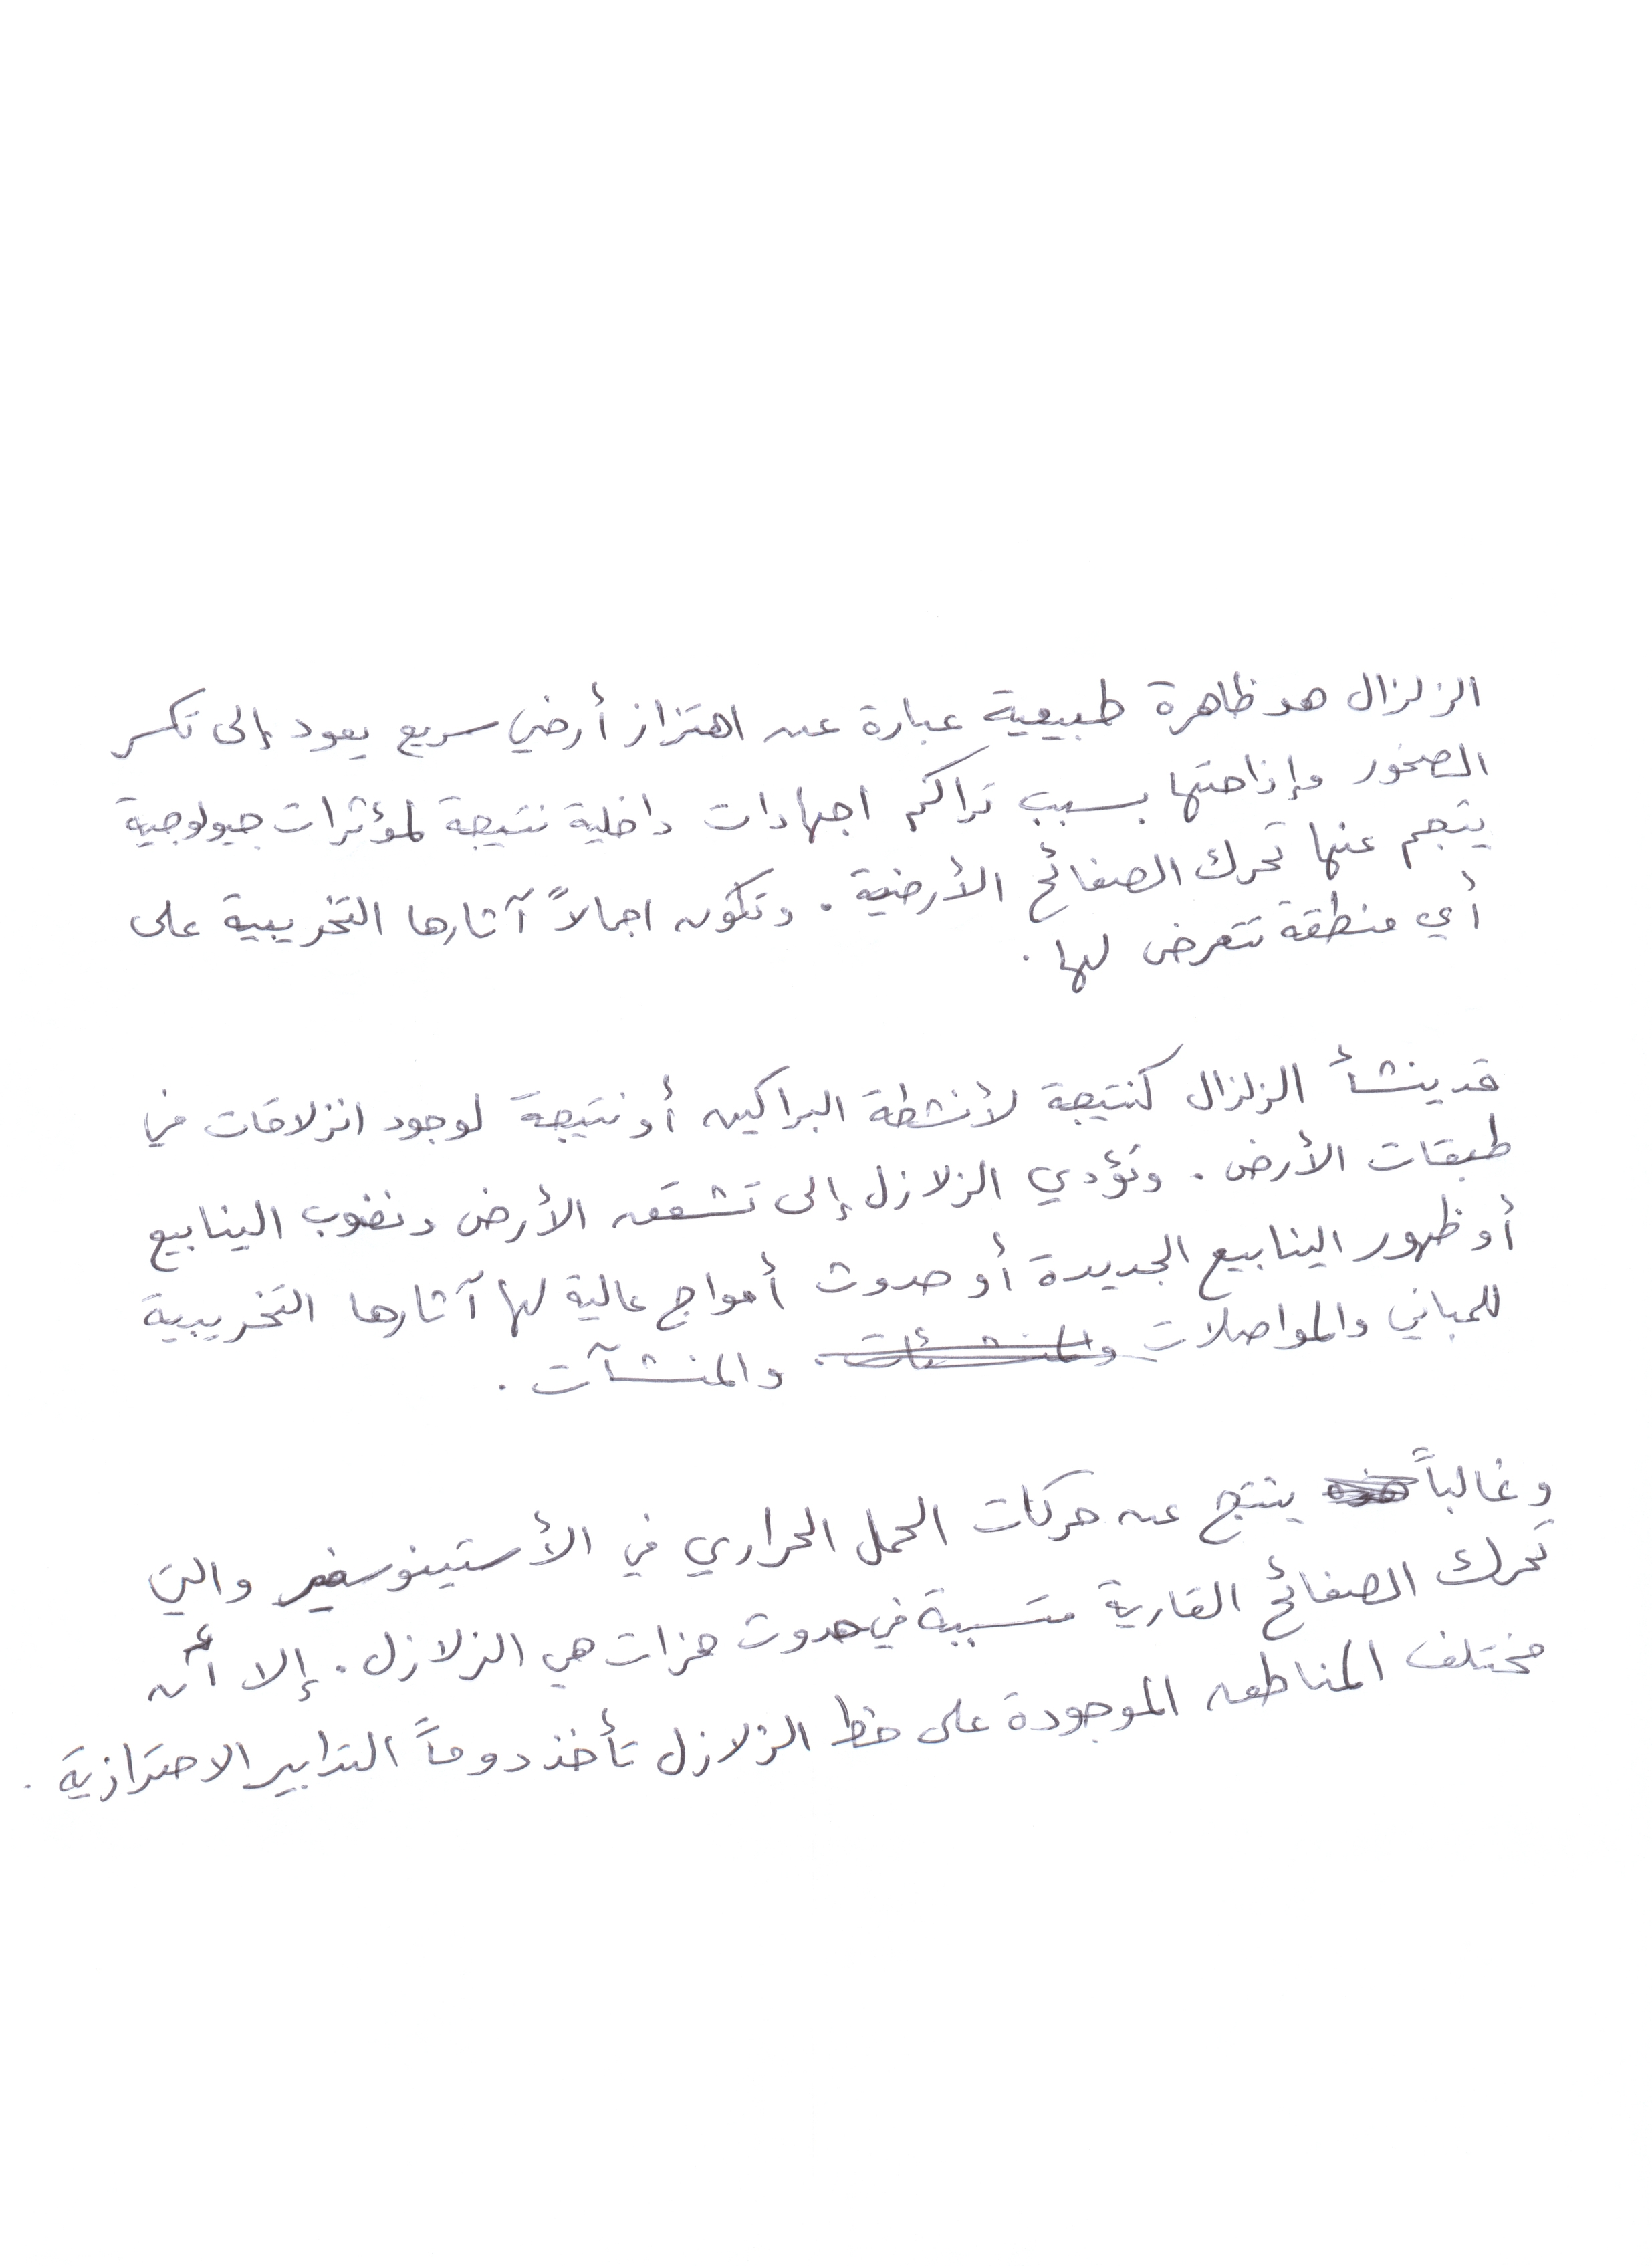 الزلزال هو ظاهرة طبيعية عبارة عن اهتزاز أرضي سريع يعود إلى تكسر
الصخور وإزاحتها بسبب تراكم اجهادات داخلية نتيجة لمؤثرات جيولوجية
ينجم عنها تحرك الصفائح الأرضية. وتكون اجمالاً آثارها التخريبية على
أي منطقة تتعرض لها.
قد ينشأ الزلزال كنتيجة لأنشطة البراكين أو نتيجة لوجود انزلاقات في
طبقات الأرض. وتؤدي الزلازل إلى تشقق الأرض ونضوب الينابيع
أو ظهور الينابيع الجديدة أو حدوث أمواج عالية لها آثارها التخريبية
للمباني والمواصلات والمنشآت.
وغالباً ينتج عن حركات الحمل الحراري في الأستينوسفير والتي
تحرك الصفائح القارية متسببة في حدوث هزات هي الزلازل. إلا أن
مختلف المناطق الموجودة على خط الزلازل تأخذ دوماً التدابير الاحترازية.